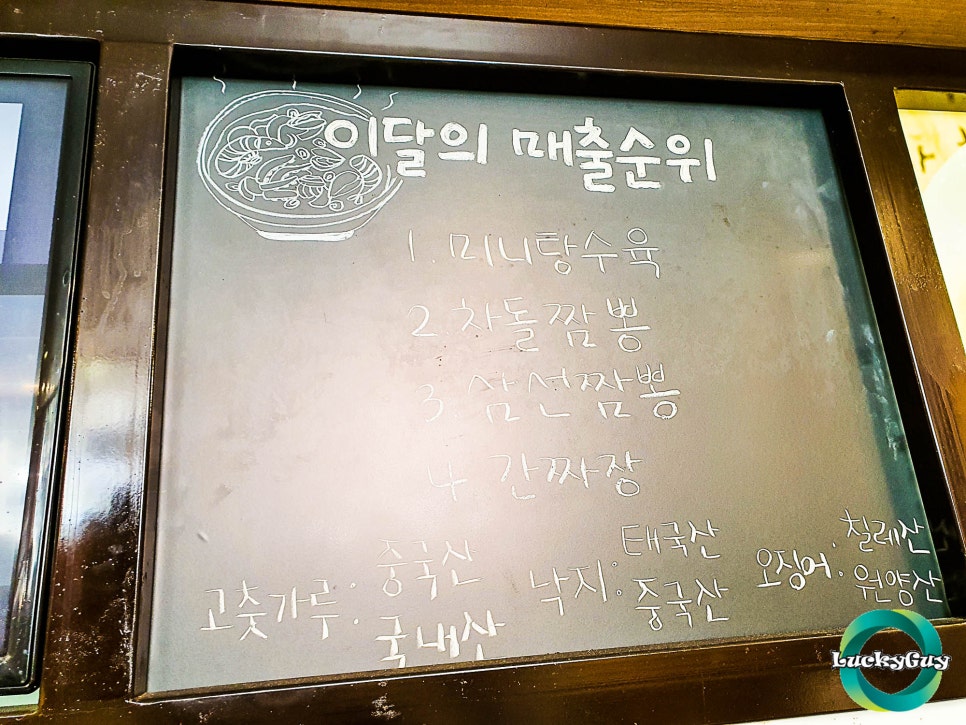 이달의 매출순위
1. 미니탕수육
2. 차돌짬뽕
3. 삼선짬뽕
4 간짜장
고춧가루: 중국산
국내산
낙지: 태국산
중국산
오징어: 칠레산
원양산
LuckyGuy